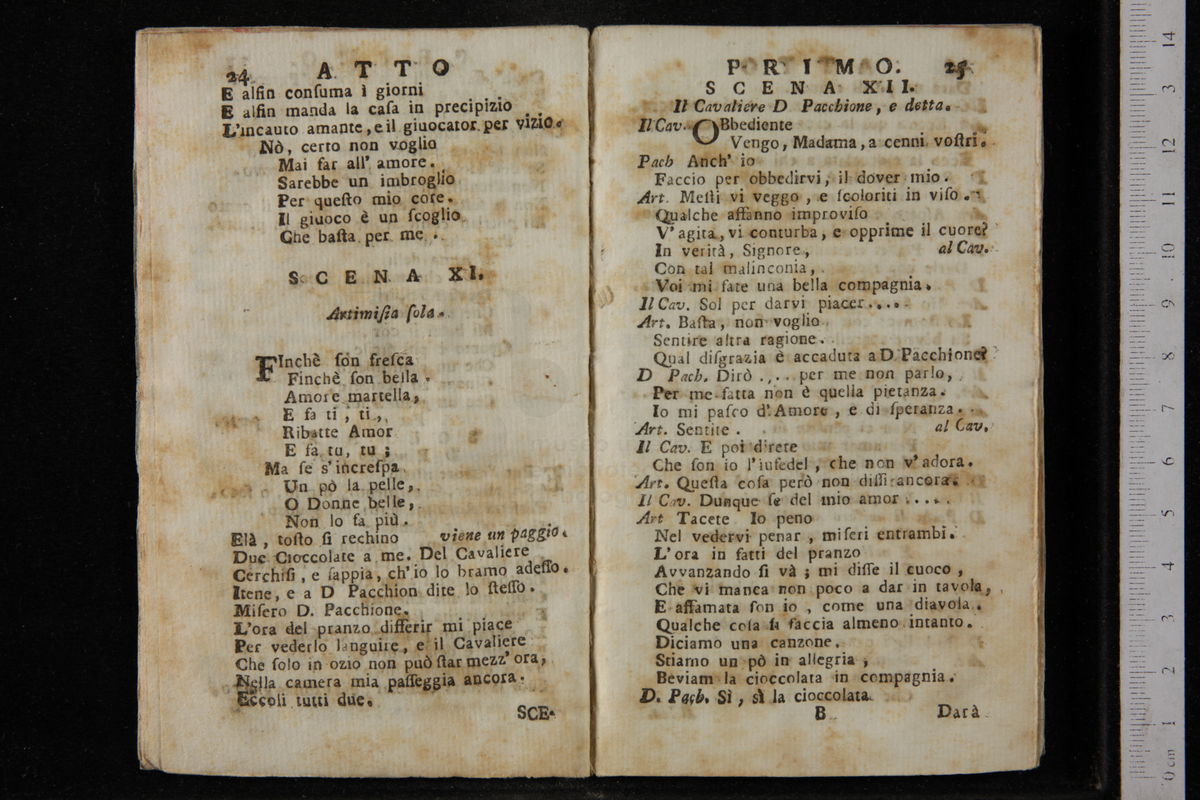 24 ATTO
E alfin conſuma i giorni
E alfin manda la caſa in precipizio
L'incauto amante, e il giuocator per vizio.
Nò, certo non voglio
Mai far all' amore.
Sarebbe un imbroglio
Per queſto mio core.
Il giuoco è un ſcoglio
Che baſta per me.
SCENA XI.
Artimiſia ſola.
FInchè ſon freſca
Finchè ſon bella.
Amore martella,
E fa ti, ti,
Ribatte Amor
E fa tu, tu;
Ma ſe s'increſpa
Un pò la pelle,
O Donne belle,
Non lo fa più.
Elà, toſto ſi rechino viene un paggio.
Due Cioccolate a me. Del Cavaliere
Cerchiſi, e ſappia, ch'io lo bramo adeſſo.
Itene, e a D Pacchion dite lo ſteſſo.
Miſero D. Pacchione.
L'ora del pranzo differir mi piace
Per vederlo languire, e il Cavaliere
Che ſolo in ozio non può ſtar mezz' ora,
Nella camera mia paſſeggia ancora.
Eccoli tutti due.
SCE-
PRIMO. 25
SCENA XII.
Il Cavaliere D Pacchione, e detta.
Il Cav. OBbediente
Vengo, Madama, a cenni voſtri.
Pach Anch' io
Faccio per obbedirvi, il dover mio.
Art. Meſti vi veggo, e ſcoloriti in viſo.
Qualche affanno improviſo
V'agita, vi conturba, e opprime il cuore?
In verità, Signore, al Cav.
Con tal malinconia,
Voi mi fate una bella compagnia.
Il Cav. Sol per darvi piacer....
Art. Baſta, non voglio
Sentire altra ragione.
Qual diſgrazia è accaduta a D Pacchione?
D Pach. Dirò .... per me non parlo,
Per me fatta non è quella pietanza.
Io mi paſco d'Amore, e di ſperanza.
Art. Sentite. al Cav.
Il Cav. E poi direte
Che ſon io l'infedel, che non v'adora.
Art. Queſta coſa però non diſſi ancora.
Il Cav. Dunque ſe del mio amor ....
Art Tacete Io peno
Nel vedervi penar, miſeri entrambi.
L'ora in fatti del pranzo
Avvanzando ſi và; mi diſſe il cuoco,
Che vi manca non poco a dar in tavola,
E affamata ſon io, come una diavola.
Qualche coſa ſi faccia almeno intanto.
Diciamo una canzone.
Stiamo un pò in allegria,
Beviam la cioccolata in compagnia.
D. Pach. Sì, sì la cioccolata
B Darà